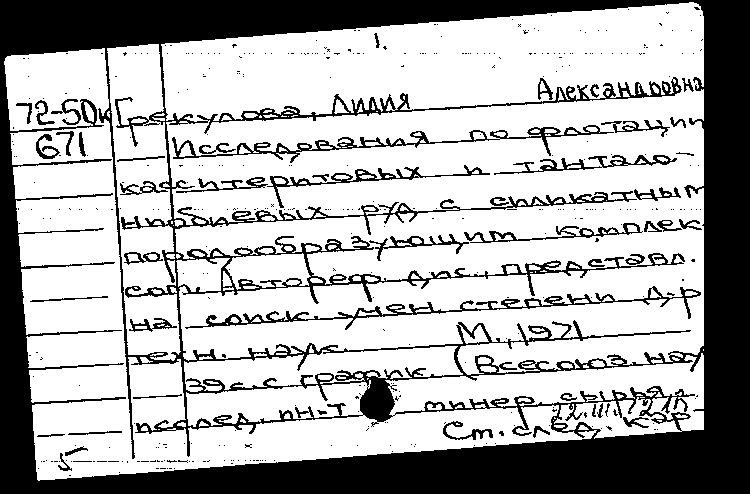 1.
72-50к Грекулова, Лидия Александровна
671 Исследования по флотации
касситеритовых и тантало-
ниобиевых руд с силикатным
породообразующим комплек-
сом. Автореф. дис., представл.
на соиск. учен. степени д-р
техн. наук. М., 1971
39 с. с график. (Всесоюз. нау
исслед. ин-т минер. сырья
22.III.72
См. след. кар-
5